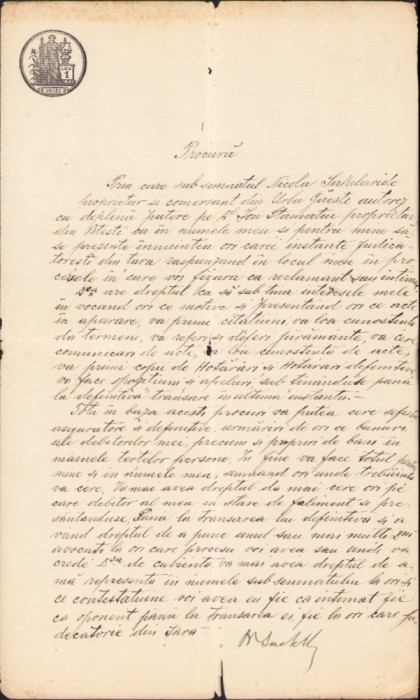 Procură
Prin care sub semnatul Nicolae
proprietar si comersant din autorez
cu deplină putere pe Dl Ion Stamatin proprietar
din ca in numele meu si pentru mine să
se presente innaintea ori carei instante Judica
toresti din tara raspunzând in locul meu in pro
cesele in care voi figura ca reclamant sau intimat
are dreptul ca să sub tina interesele mele
in vocand ori ce motive si presentand ori ce acte
in aparare, va primi citatiuni, va lua cunostinta
din termene, va referi si deferi jurămante, va cere
comunicari de acte, va lua cunostinta de acte,
va primi copii de Hotărâri si Hotărâri definitive
va face opositiuni si apeluri sub tinânduse pana
la definitiva transare in ultima instantă.—
Tot in baza acesti procuri va putea cere
asiguratore si definitive, urmăriri de ori ce banuri
ale debitorilor mei, precum si propriri de bani in
mâinele tertelor persone. In fine va face totul pentru
mine si in numele meu, semnand ori unde trebuinta
va cere, va mai avea dreptul da mai cere ori pe
care debitor al meu in stare de faliment si pre
sentanduse, pana la transarea lui definitivă si a
vand dreptul de a pune unul sau mai multi
avocati la ori care procesu voi avea sau unde va
crede de cuvinta, va mai avea dreptul de a
mă representa in numele subsemnatului la ori si
ce contestatiune voi avea eu fie ca intimat fie
ca oponent pana la transarea ei fie la ori care ju
decatorie din tara—